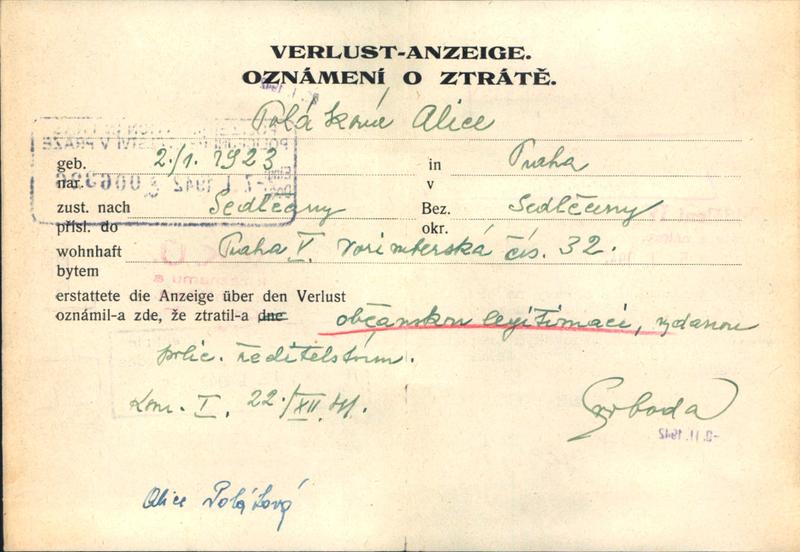 VERLUST-ANZEIGE.
OZNÁMENÍ O ZTRÁTĚ.
Poláková Alice
geb. 2./1. 1923 in Praha
nar. v
zust. nach Sedlčany Bez. Sedlčany
přísl. do okr.
wohnhaft Praha V. Norimberská čís. 32.
bytem
erstattete die Anzeige über den Verlust
oznámil-a zde, že ztratil-a dne občanskou legitimaci, vydanou
polic. ředitelstvím.
Kom. I. 22./XII. 41.
Svoboda
Alice Poláková